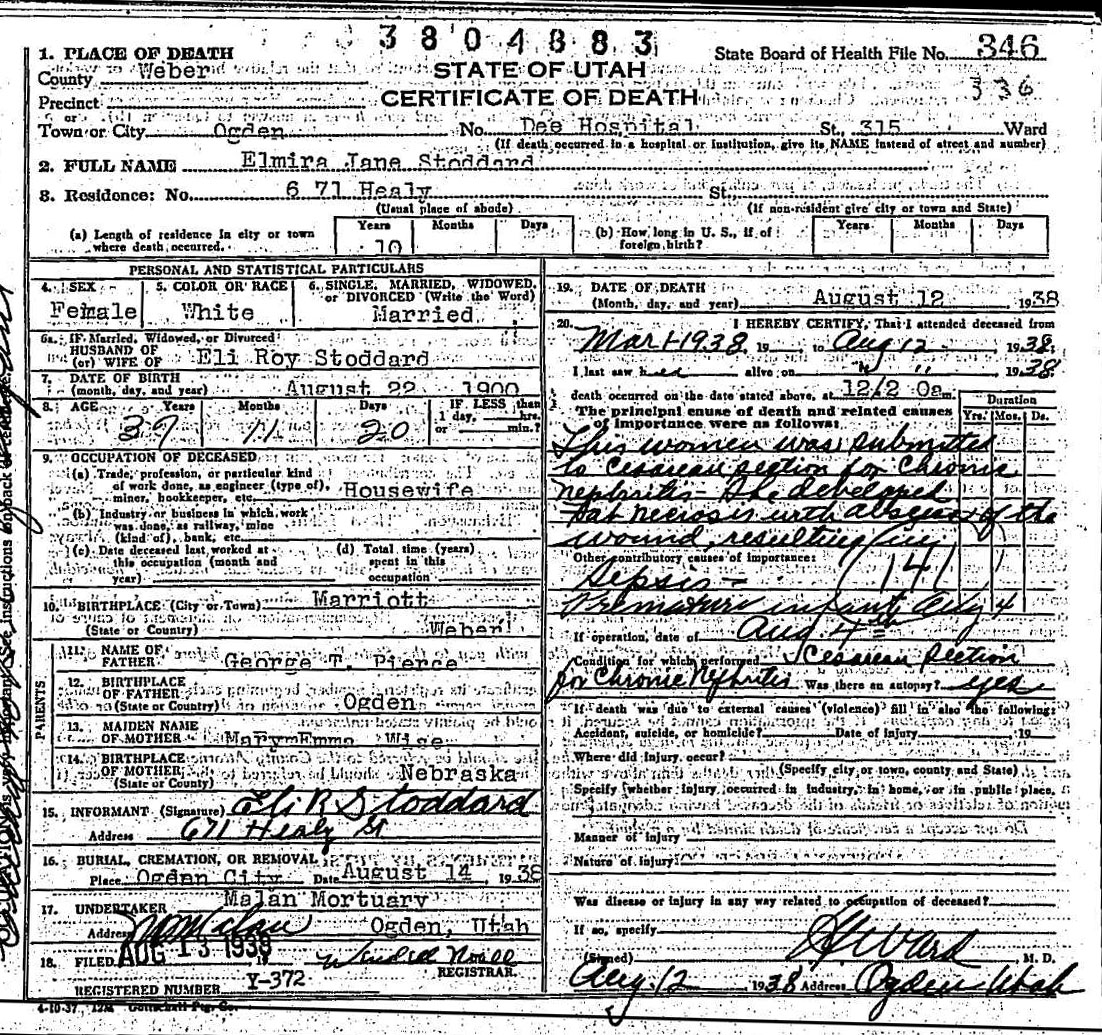 3804883
State Board of Health File No. 346
336
1. PLACE OF DEATH
STATE OF UTAH
County Weber
CERTIFICATE OF DEATH
Precinct
or
Town or City Ogden No. Dee Hospital St., 315 Ward
(If death occurred in a hospital or institution, give its NAME instead of street and number)
2. FULL NAME Elmira Jane Stoddard
3. Residence: No. 6 71 Healy St.
(Usual place of abode) (If non-resident give city or town and State)
(a) Length of residence in city or town where death occurred. Years 10 Months Days
(b) How long in U. S., if of foreign birth? Years Months Days
PERSONAL AND STATISTICAL PARTICULARS
4. SEX Female
5. COLOR OR RACE White
6. SINGLE, MARRIED, WIDOWED, or DIVORCED (Write the Word) Married
6a. IF Married, Widowed, or Divorced
HUSBAND OF
(or) WIFE OF Eli Roy Stoddard
7. DATE OF BIRTH
(month, day, and year) August 22 1900
8. AGE Years 37 Months 11 Days 20 IF LESS than 1 day, hrs. or min.?
9. OCCUPATION OF DECEASED
(a) Trade, profession, or particular kind
of work done, as engineer (type of),
miner, bookkeeper, etc. Housewife
(b) Industry or business in which work
was done, as railway, mine
(kind of), bank, etc.
(c) Date deceased last worked at
this occupation (month and
year)
(d) Total time (years)
spent in this
occupation
10. BIRTHPLACE (City or Town) Marriott
(State or Country) Weber
PARENTS
11. NAME OF
FATHER George T. Pierce
12. BIRTHPLACE
OF FATHER
(State or Country) Ogden
13. MAIDEN NAME
OF MOTHER Mary Emma Wise
14. BIRTHPLACE
OF MOTHER
(State or Country) Nebraska
15. INFORMANT (Signature) Eli R Stoddard
Address 671 Healy St
16. BURIAL, CREMATION, OR REMOVAL
Place Ogden City Date August 14, 1938
17. UNDERTAKER Malan Mortuary
Address Ogden, Utah
18. FILED AUG 13 1938
REGISTRAR.
REGISTERED NUMBER Y-372
4-10-37 12M
19. DATE OF DEATH
(Month, day, and year) August 12 1938
20. I HEREBY CERTIFY, That I attended deceased from
Mar 1-1938, 19 to Aug 12- 1938.
I last saw her alive on " " 1938
death occurred on the date stated above, at 12/2 0a m.
The principal cause of death and related causes
of importance were as follows:
Duration
Yrs. Mos. Ds.
This women was submitted
to Cesarean section for Chronic
nephritis - She developed
fat necrosis with abscess of the
wound resulting in
Other contributory causes of importance:
Sepsis - 141
Premature infant Aug 4
If operation, date of Aug 4th
Condition for which performed Cesarean Section
for Chronic Nephritis Was there an autopsy? yes
If death was due to external causes (violence) fill in also the following:
Accident, suicide, or homicide? Date of injury 19
Where did injury occur?
(Specify city or town, county and State)
Specify whether injury occurred in industry, in home, or in public place,
Manner of injury
Nature of injury
Was disease or injury in any way related to occupation of deceased?
If so, specify
(Signed) Ward M. D.
Aug. 12 1938 Address Ogden Utah